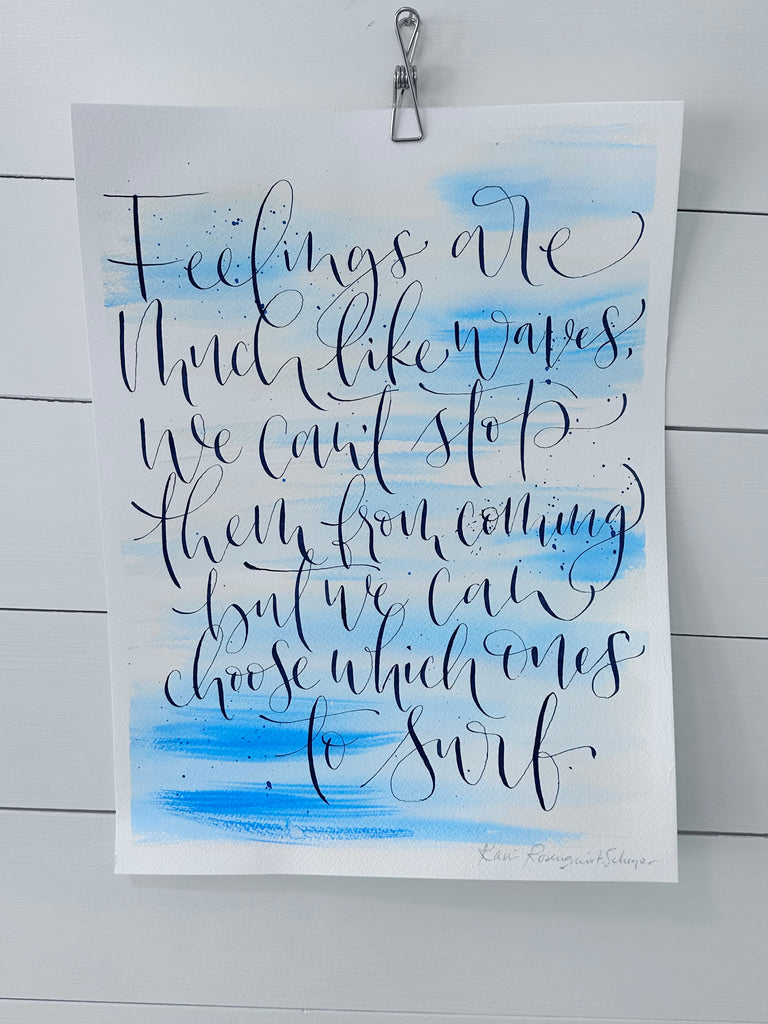 Feelings are
much like waves,
we can't stop
them from coming
but we can
choose which ones
to surf.